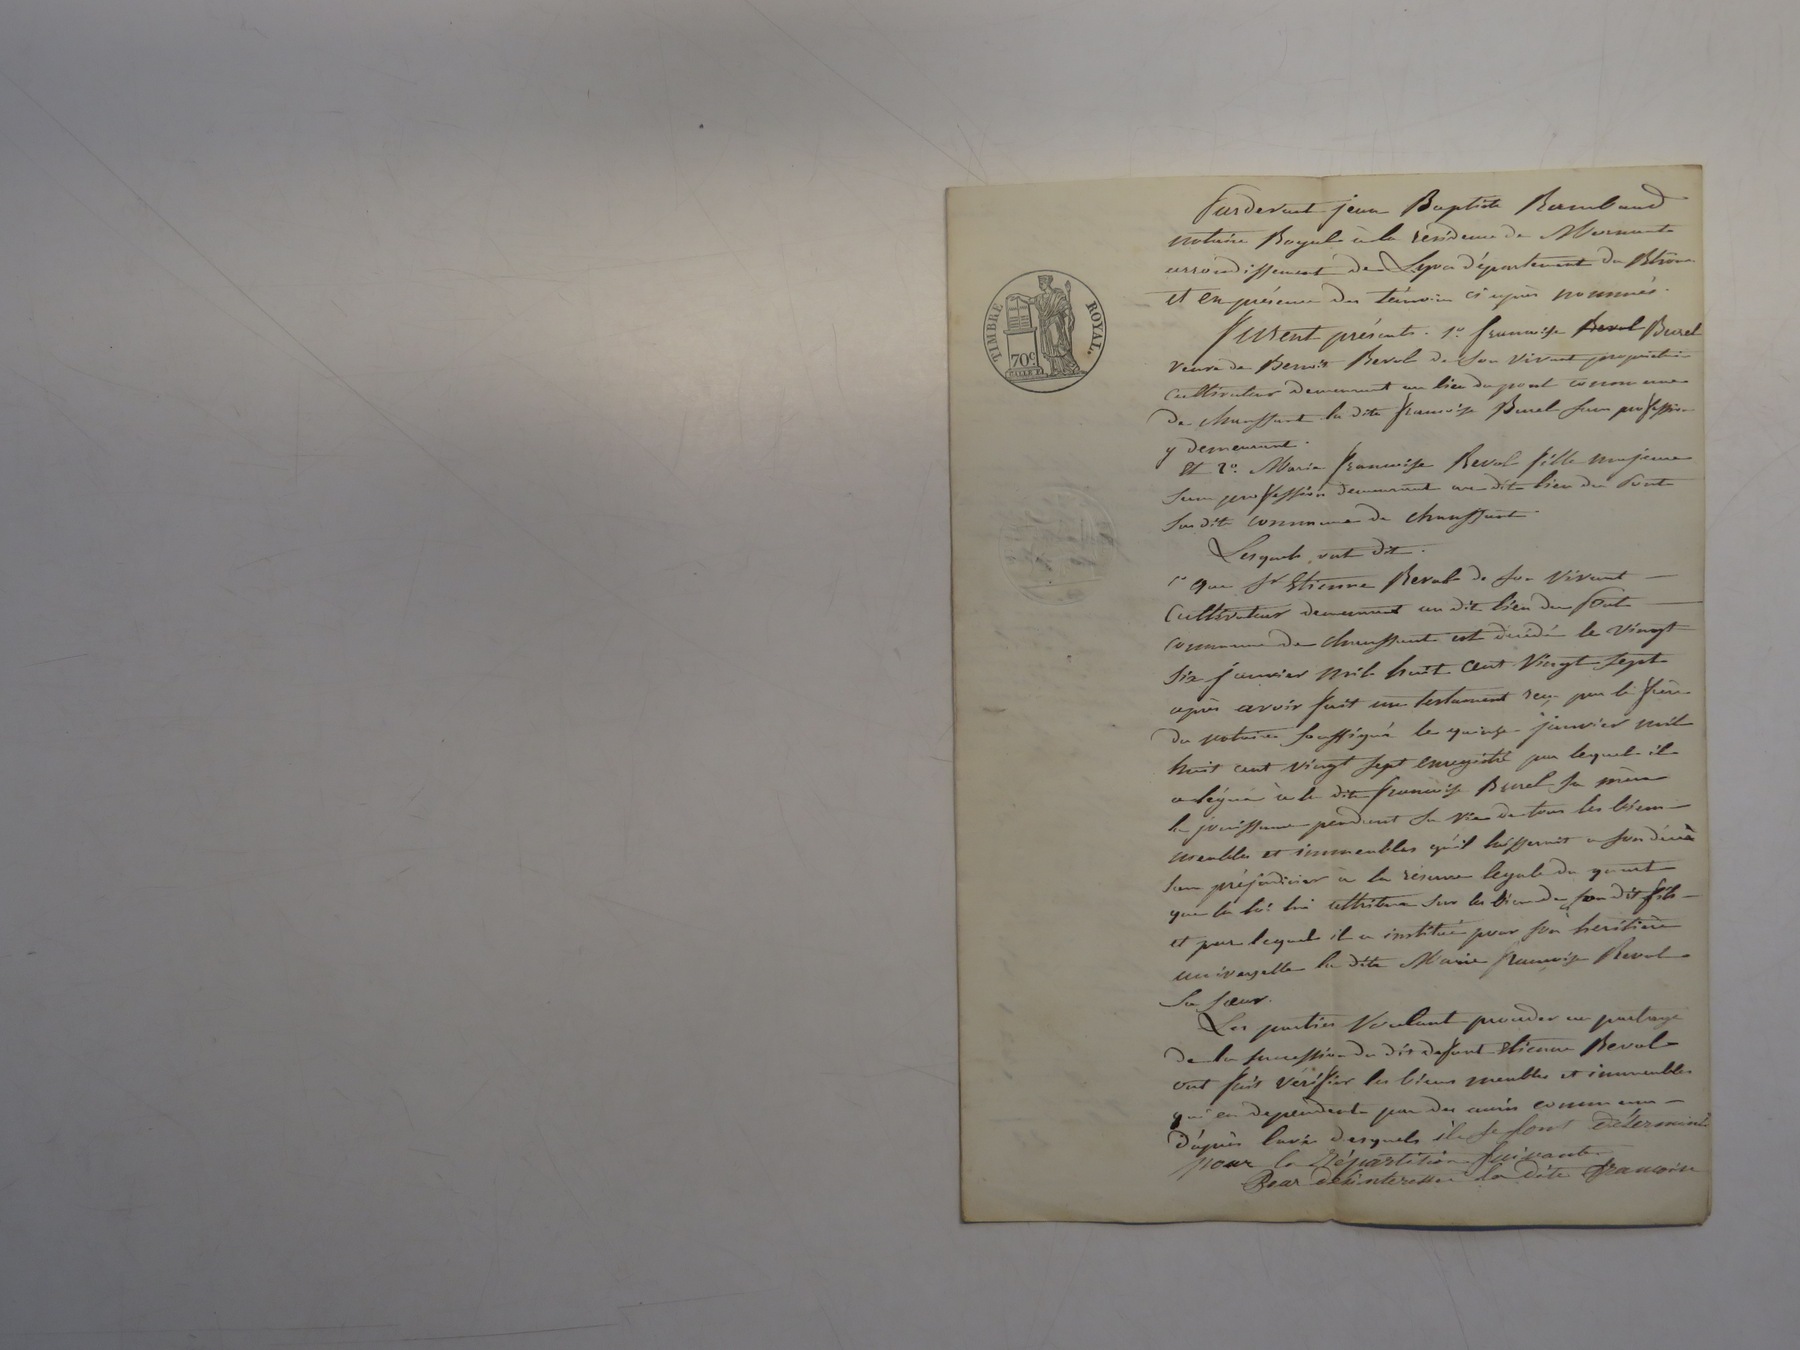 TIMBRE ROYAL
70 c
Pardevant jean Baptiste Rambaud
notaire Royal à la résidence de Mornant
arrondissement de Lyon département du Rhône
et en présence des témoins ci après nommés.
Furent présents. 1º. francoise Revol Burel
veuve de Benoit Revol de son vivant propriétaire
cultivateur demeurant au lieu du pont commune
de chaussant la dite francoise Burel sans profession
y demeurant.
Et 2º. Marie francoise Revol fille majeure
sans profession demeurant au dit lieu du Pont
susdite commune de chaussant.
Lesquels ont dit.
1º que sr. Etienne Revol de son vivant
Cultivateur demeurant au dit lieu du Pont
commune de chaussant est décédé le vingt
six janvier mil huit cent vingt sept
après avoir fait un testament reçu par le frère
du notaire soussigné le quinze janvier mil
huit cent vingt sept enregistré par lequel il
a légué à la dite francoise Burel sa mère
la jouissance pendant sa vie de tous les biens
meubles et immeubles qu'il laisserait a son décès
sans préjudicier à la réserve légale du quart
que la loi lui attribue sur les biens de son dit fils
et par lequel il a institué pour son heritière
universelle la dite Marie francoise Revol
sa sœur.
Les parties voulant proceder au partage
de la succession du dit defunt Etienne Revol
ont fait vérifier les biens meubles et immeubles
qui en dependent par des amis communs
d'après l'avis desquels ils se sont déterminés
pour la Répartition suivante.
Pour désinteresser la dite francoise